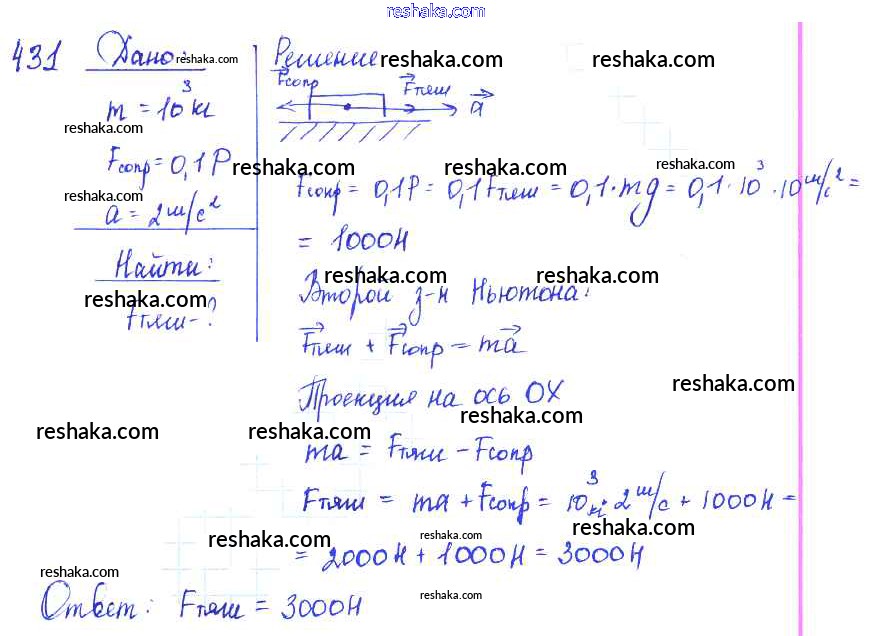 reshaka.com
431 Дано: reshaka.com
m = 10³ кг
reshaka.com
Fсопр = 0,1P
reshaka.com
a = 2 м/с²
Найти:
reshaka.com
Fтяги - ?
Решение reshaka.com reshaka.com
Fсопр Fтяги a
reshaka.com reshaka.com reshaka.com
Fсопр = 0,1P = 0,1Fтяж = 0,1·mg = 0,1·10³·10 м/с² =
= 1000Н
reshaka.com reshaka.com
Второй з-н Ньютона:
Fтяги + Fсопр = ma
reshaka.com
Проекция на ось OX
reshaka.com
reshaka.com reshaka.com
ma = Fтяги - Fсопр
Fтяги = ma + Fсопр = 10³ кг · 2 м/с + 1000Н =
reshaka.com reshaka.com reshaka.com
= 2000Н + 1000Н = 3000Н
reshaka.com
Ответ: Fтяги = 3000Н
reshaka.com